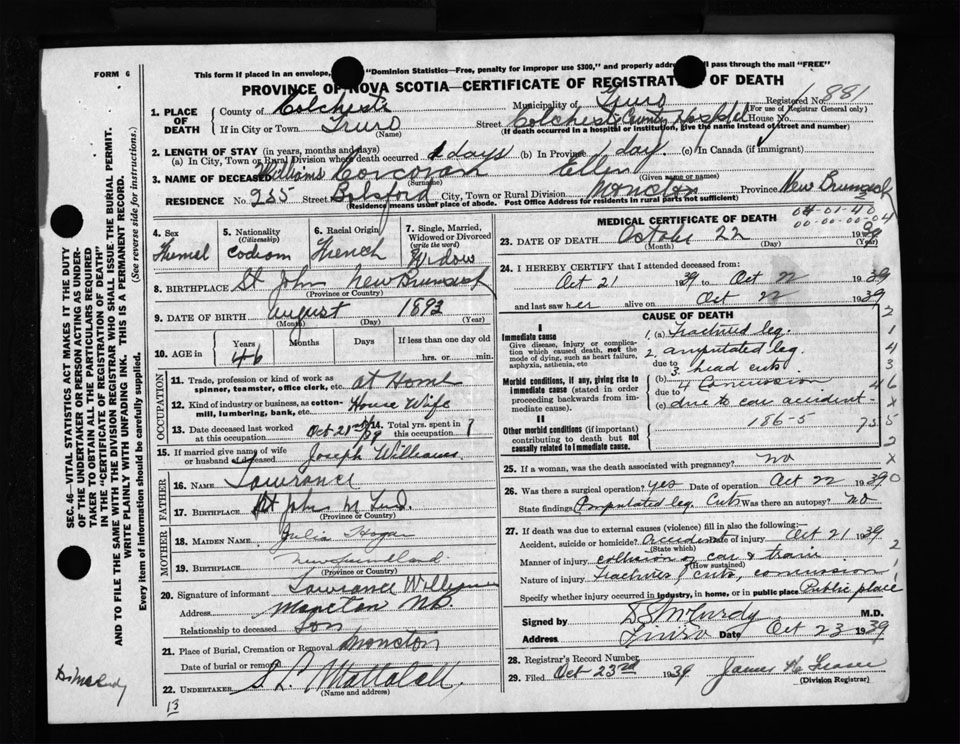 FORM 6
This form if placed in an envelope, "Dominion Statistics—Free, penalty for improper use $300," and properly address ll pass through the mail "FREE"
PROVINCE OF NOVA SCOTIA—CERTIFICATE OF REGISTRAT OF DEATH
Registered No. 881
(For use of Registrar General only)
1. PLACE OF DEATH
County of Colchester
Municipality of Truro
If in City or Town Truro
(Name)
Street Colchester County Hospital House No.
(If death occurred in a hospital or institution, give the name instead of street and number)
2. LENGTH OF STAY (in years, months and days)
(a) In City, Town or Rural Division where death occurred 1 days (b) In Province 1 day. (c) In Canada (if immigrant)
3. NAME OF DECEASED Williams Corcoran Ellen
(Surname) (Given name or names)
RESIDENCE No. 255 Street Botsford City, Town or Rural Division Moncton Province New Brunswick
(Residence means usual place of abode. Post Office Address for residents in rural parts not sufficient)
4. Sex
Femel
5. Nationality
(Citizenship)
6. Racial Origin
French
7. Single, Married, Widowed or Divorced
(write the word)
Widow
8. BIRTHPLACE St John New Brunswick
(Province or Country)
9. DATE OF BIRTH August 1893
(Month) (Day) (Year)
10. AGE in
Years Months Days If less than one day old
46
hrs. or min.
OCCUPATION
11. Trade, profession or kind of work as spinner, teamster, office clerk, etc. at Home
12. Kind of industry or business, as cotton-mill, lumbering, bank, etc. House Wife
13. Date deceased last worked at this occupation Oct 21st 39
14. Total yrs. spent in this occupation
15. If married give name of wife or husband of deceased Joseph Williams
FATHER
16. NAME Lawrance
17. Birthplace St Johns N Fld.
MOTHER
18. MAIDEN NAME Julia Hogan
19. BIRTHPLACE Newfoundland
(Province or Country)
20. Signature of informant Lawrance Williams
Address Moncton NB.
Relationship to deceased Son
21. Place of Burial, Cremation or Removal Moncton
Date of burial or removal
22. UNDERTAKER S L Mattatall
(Name and address)
13
MEDICAL CERTIFICATE OF DEATH
04-01-40
00-00-00-04
23. DATE OF DEATH October 22 1939
(Month) (Day) (Year)
24. I HEREBY CERTIFY that I attended deceased from:
Oct 21 1939 to Oct 22 1939
and last saw her alive on Oct 22 1939
CAUSE OF DEATH
I
Immediate cause
Give disease, injury or complication which caused death, not the mode of dying, such as heart failure, asphyxia, asthenia, etc
Morbid conditions, if any, giving rise to immediate cause (stated in order proceeding backwards from immediate cause).
II
Other morbid conditions (if important) contributing to death but not causally related to immediate cause.
1. (a) Fractured leg.
2. amputated leg.
due to
3. head cuts
(b)
4 Concussion
due to
(c) due to car accident
186-5
25. If a woman, was the death associated with pregnancy? no
26. Was there a surgical operation? yes Date of operation Oct 22 1939
State findings Amputated leg. Cuts Was there an autopsy? No
27. If death was due to external causes (violence) fill in also the following:
Accident, suicide or homicide? Accident Date of injury Oct 21 1939
(State which)
Manner of injury collision of car & train
(How sustained)
Nature of injury Fractures, cuts, concussion
Specify whether injury occurred in industry, in home, or in public place Public place
Signed by D S McCurdy M.D.
Address Truro Date Oct 23 1939
28. Registrar's Record Number
29. Filed Oct 23rd 1939 James
(Division Registrar)
SEC. 46—VITAL STATISTICS ACT MAKES IT THE DUTY
OF THE UNDERTAKER OR PERSON ACTING AS UNDERTAKER TO OBTAIN ALL THE PARTICULARS REQUIRED
IN THE "CERTIFICATE OF REGISTRATION OF DEATH"
AND TO FILE THE SAME WITH THE DIVISION REGISTRAR WHO SHALL ISSUE THE BURIAL PERMIT.
WRITE PLAINLY WITH UNFADING INK. THIS IS A PERMANENT RECORD.
Every item of information should be carefully supplied. (See reverse side for instructions.)